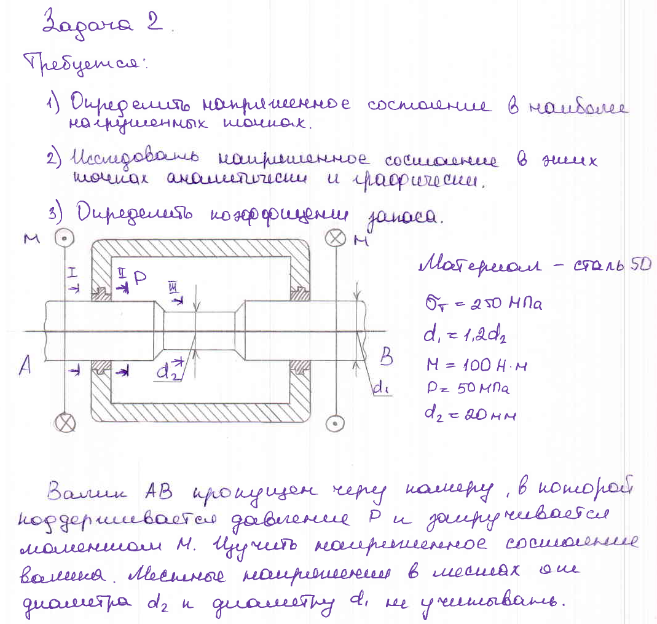 Задача 2.
Требуется:
1) Определить напряженное состояние в наиболее
нагруженных точках.
2) Исследовать напряженное состояние в этих
точках аналитически и графически.
3) Определить коэффициент запаса.
М М
I II P III
A d₂ B d₁
Материал – сталь 50
σт = 250 МПа
d₁ = 1,2d₂
М = 100 Н·м
P = 50 МПа
d₂ = 20 мм
Валик АВ пропущен через камеру, в которой
поддерживается давление P и закручивается
моментом М. Изучить напряженное состояние
валика. Местные напряжения в местах от
диаметра d₂ к диаметру d₁ не учитывать.